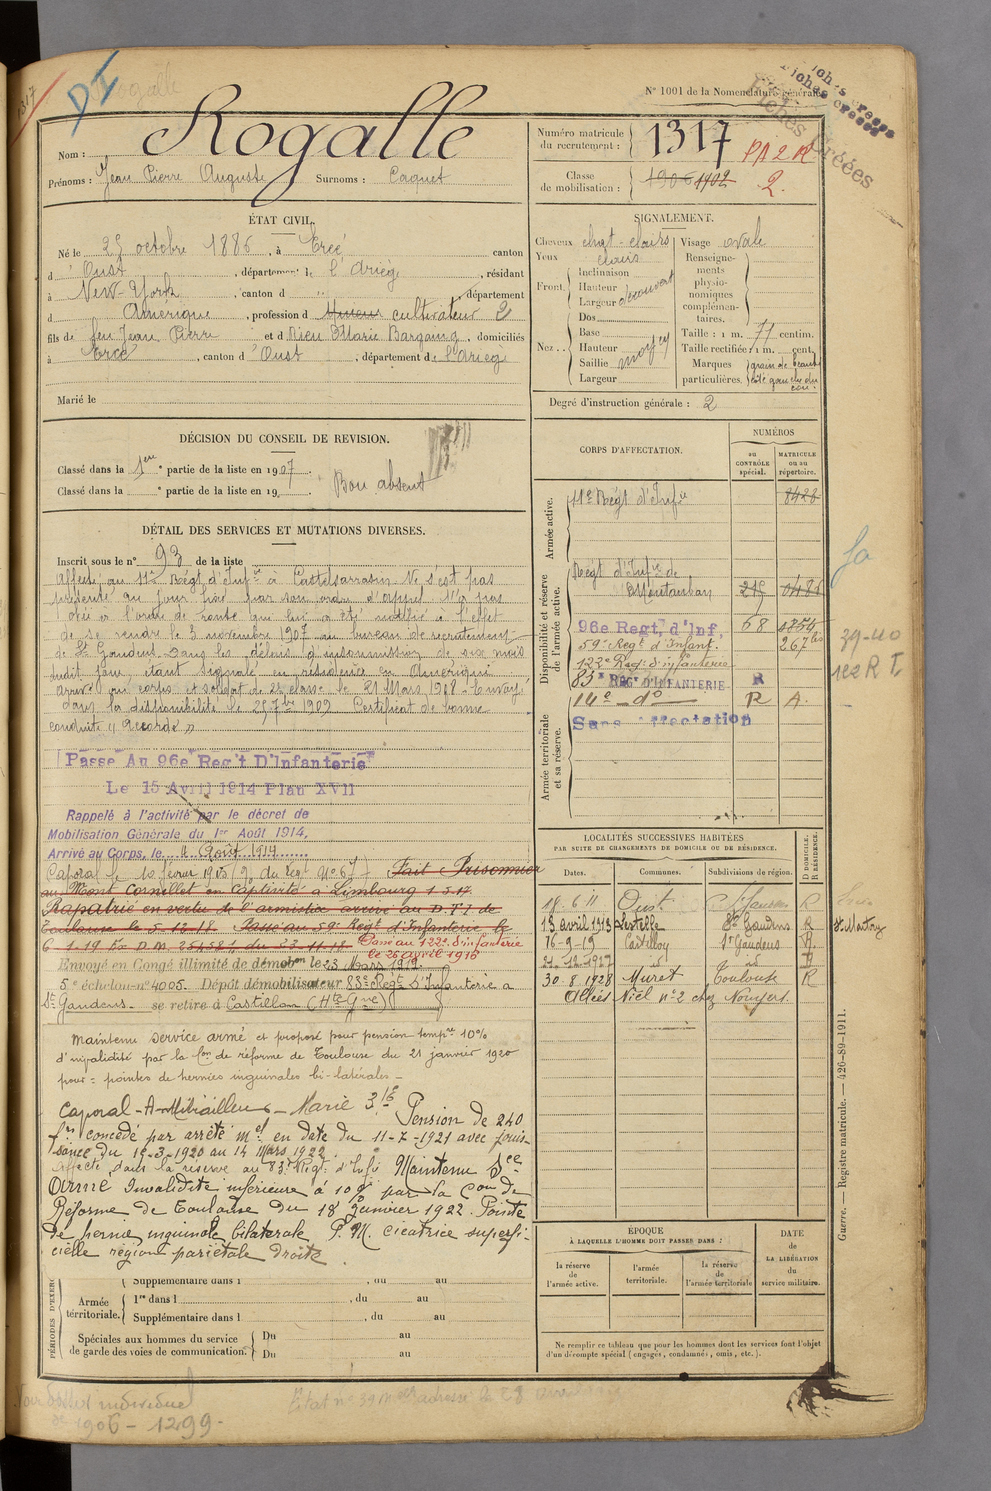 1317
DI
Rogalle
N° 1001 de la Nomenclature générale.
Fiches créées
Nom : Rogalle
Prénoms : Jean Pierre Auguste Surnoms : Caquet
Numéro matricule du recrutement : 1317
PA 2 R
Classe de mobilisation : 1906 1902
2.
ÉTAT CIVIL.
Né le 25 octobre 1886, à Ercé canton
d Oust, département de l'Ariège, résidant
à New-York, canton d " , département
d Amérique, profession d cultivateur 2
fils de feu Jean Pierre et d Marie Bargaing, domiciliés
à Ercé, canton d Oust, département de l'Ariège
Marié le
SIGNALEMENT.
Cheveux chat-clairs Visage ovale
Yeux clairs
Front. Inclinaison
Hauteur
Largeur découvert
Nez. Dos
Base
Hauteur
Saillie moyen
Largeur
Renseignements physionomiques complémentaires.
Taille : 1 m. 71 centim.
Taille rectifiée : 1 m. cent.
Marques particulières. grain de beauté côté gauche du cou.
Degré d'instruction générale : 2
DÉCISION DU CONSEIL DE REVISION.
Classé dans la 1ère partie de la liste en 1907.
Classé dans la ° partie de la liste en 19
Bon absent
DÉTAIL DES SERVICES ET MUTATIONS DIVERSES.
Inscrit sous le n° 93 de la liste
Affecté au 11e Régt d'Infie à Castelsarrasin. Ne s'est pas
présenté au jour fixé par son ordre d'appel. N'a pas
obéi à l'ordre de route qui lui a été notifié à l'effet
de se rendre le 3 novembre 1907 au bureau de recrutement
de St Gaudens dans les délais d'insoumission de six mois
dudit jour, étant signalé en résidence en Amérique
arrivé au corps et soldat de 2e classe le 21 Mars 1908. Envoyé
dans la disponibilité le 25 7bre 1909. Certificat de bonne
conduite « Accordé »
Passé Au 96e Reg't D'Infanterie
Le 15 Avril 1914 Plan XVII
Rappelé à l'activité par le décret de
Mobilisation Générale du 1er Août 1914,
Arrivé au Corps, le 4 Août 1914
Caporal le 10 février 1915 Fait Prisonnier
au Mont Cornillet en Captivité à Limbourg 1.5.17.
Rapatrié en vertu de l'armistice arrivé au D.T.I de
Toulouse le 5.12.18. Passé au 59e Régt d'Infanterie le
6.1.19 Passé au 122e d'infanterie
le 26 avril 1916
Envoyé en Congé illimité de démobon le 23 Mars 1919.
5e échelon n° 4005. Dépôt démobilisateur 83e Régt D'Infanterie à
St Gaudens. se retire à Castillon (Hte Gne)
Maintenu service armé et proposé pour pension tempre 10%
d'invalidité par la Con de réforme de Toulouse du 21 janvier 1920
pour : pointes de hernies inguinales bi-latérales
Caporal
Pension de 240
frs concédé par arrêté mel en date du 11-7-1921 avec jouis-
sance du 15-3-1920 au 14 Mars 1922.
Affecté dans la réserve au 83e Régt d'Infie Maintenu Sce
Armé Invalidité inférieure à 10% par la Con de
Réforme de Toulouse du 18 Janvier 1922. Pointe
de hernie inguinale bilatérale P.M. cicatrice superfi-
cielle région pariétale droite.
CORPS D'AFFECTATION.
NUMÉROS
au CONTRÔLE spécial.
MATRICULE ou au répertoire.
Armée active.
11e Régt d'Infie 8428
Disponibilité et réserve de l'armée active.
Régt d'Infie de
Montauban
96e Regt, d'Inf. 68
59e Régt d'Infant.
122e Régt d'infanterie
83e REGt D'INFANTERIE R
14e d° R A.
Armée territoriale et sa réserve.
Sans affectation
39-40
122 R I.
LOCALITÉS SUCCESSIVES HABITÉES
PAR SUITE DE CHANGEMENTS DE DOMICILE OU DE RÉSIDENCE.
Dates. Communes. Subdivisions de région. D DOMICILE. R RÉSIDENCE.
18.6.11 Oust St Gaudens R
13 avril 1913 Lestelle St Gaudens R
16-9-19 Castillon St Gaudens
21.12.1927 id id
30.8.1928 Muret Toulouse R
Allées Niel n° 2 chez
ÉPOQUE
À LAQUELLE L'HOMME DOIT PASSER DANS :
la réserve de l'armée active.
l'armée territoriale.
la réserve de l'armée territoriale
DATE de LA LIBÉRATION du service militaire.
Ne remplir ce tableau que pour les hommes dont les services font l'objet
d'un décompte spécial (engagés, condamnés, omis, etc.).
PÉRIODES D'EXERC
Supplémentaire dans l , du au
Armée territoriale. 1re dans l , du au
Supplémentaire dans l , du au
Spéciales aux hommes du service de garde des voies de communication. Du au
Du au
Guerre. — Registre matricule. — 426-89-1911.
Voir dossier individuel
de 1906 - 1299 -